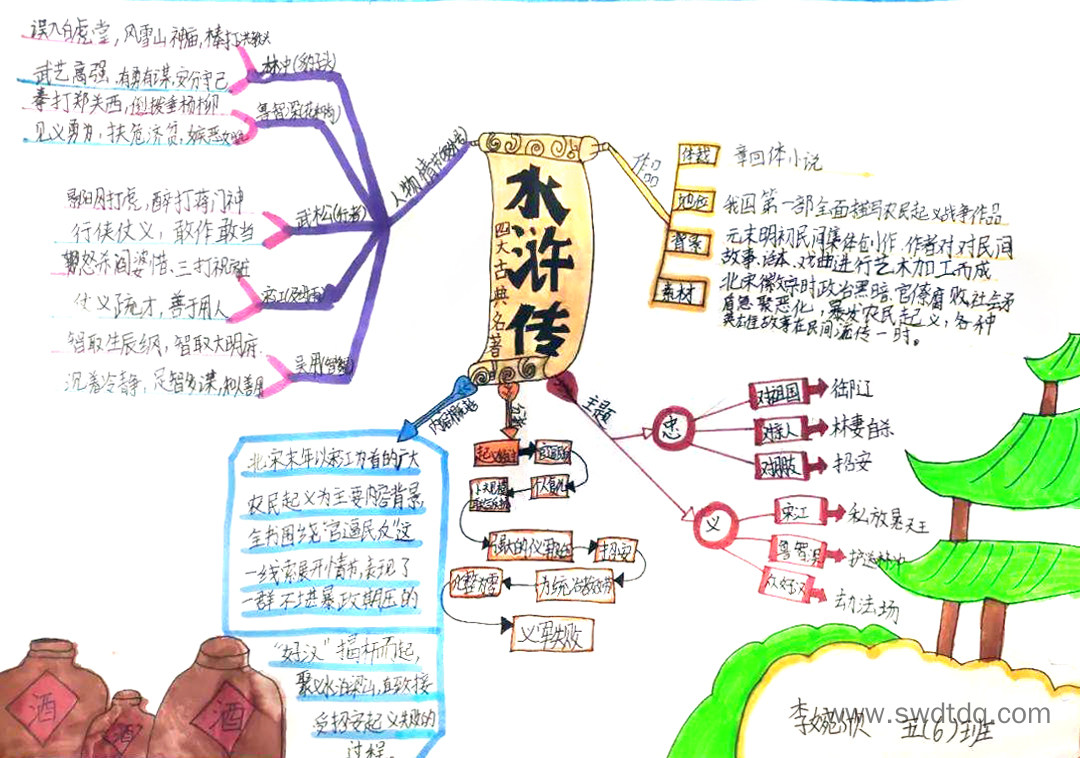 水浒传
四大古典名著
人物情节(绰号)
林冲(豹子头)
误入白虎堂，风雪山神庙，棒打洪教头
武艺高强，有勇有谋，安分守己
鲁智深(花和尚)
拳打郑关西，倒拔垂杨柳
见义勇为，扶危济贫，嫉恶如仇
武松(行者)
景阳冈打虎，醉打蒋门神
行侠仗义，敢作敢当
宋江(及时雨)
怒杀阎婆惜，三打祝家庄
仗义疏才，善于用人
吴用(智多星)
智取生辰纲，智取大明府
沉着冷静，足智多谋，
作品
体裁
章回体小说
地位
我国第一部全面描写农民起义战争作品
背景
元末明初民间集体创作，作者对对民间
故事、话本、戏曲进行艺术加工而成
素材
北宋徽宗时政治黑暗，官僚腐败社会矛
盾急聚恶化，暴发农民起义，各种
英雄故事在民间流传一时。
内容概括
北宋末年以宋江为首的广大
农民起义为主要内容背景，
全书围绕"官逼民反"这
一线索展开情节，表现了
一群不堪暴政欺压的
"好汉"揭竿而起，
聚义水泊梁山，直致接
受招安起义失败的
过程。
个人复仇
强大的义军
招安
为统治者效劳
义军失败
主题
忠
对祖国
御辽
对亲人
林妻自杀
对朝政
招安
义
宋江
私放晁天王
鲁智深
护送林冲
众好汉
劫法场
酒
酒
酒
www.swdtdq.com
五(6)班